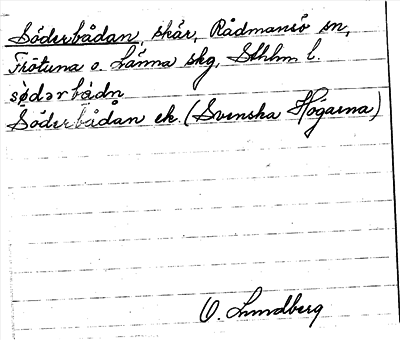 Söderbådan, skär, Rådmansö sn,
Frötuna o. Länna skg, Sthlm l.
sødərbådn
Söderbådan ek. (Svenska Högarna)
O. Lundberg